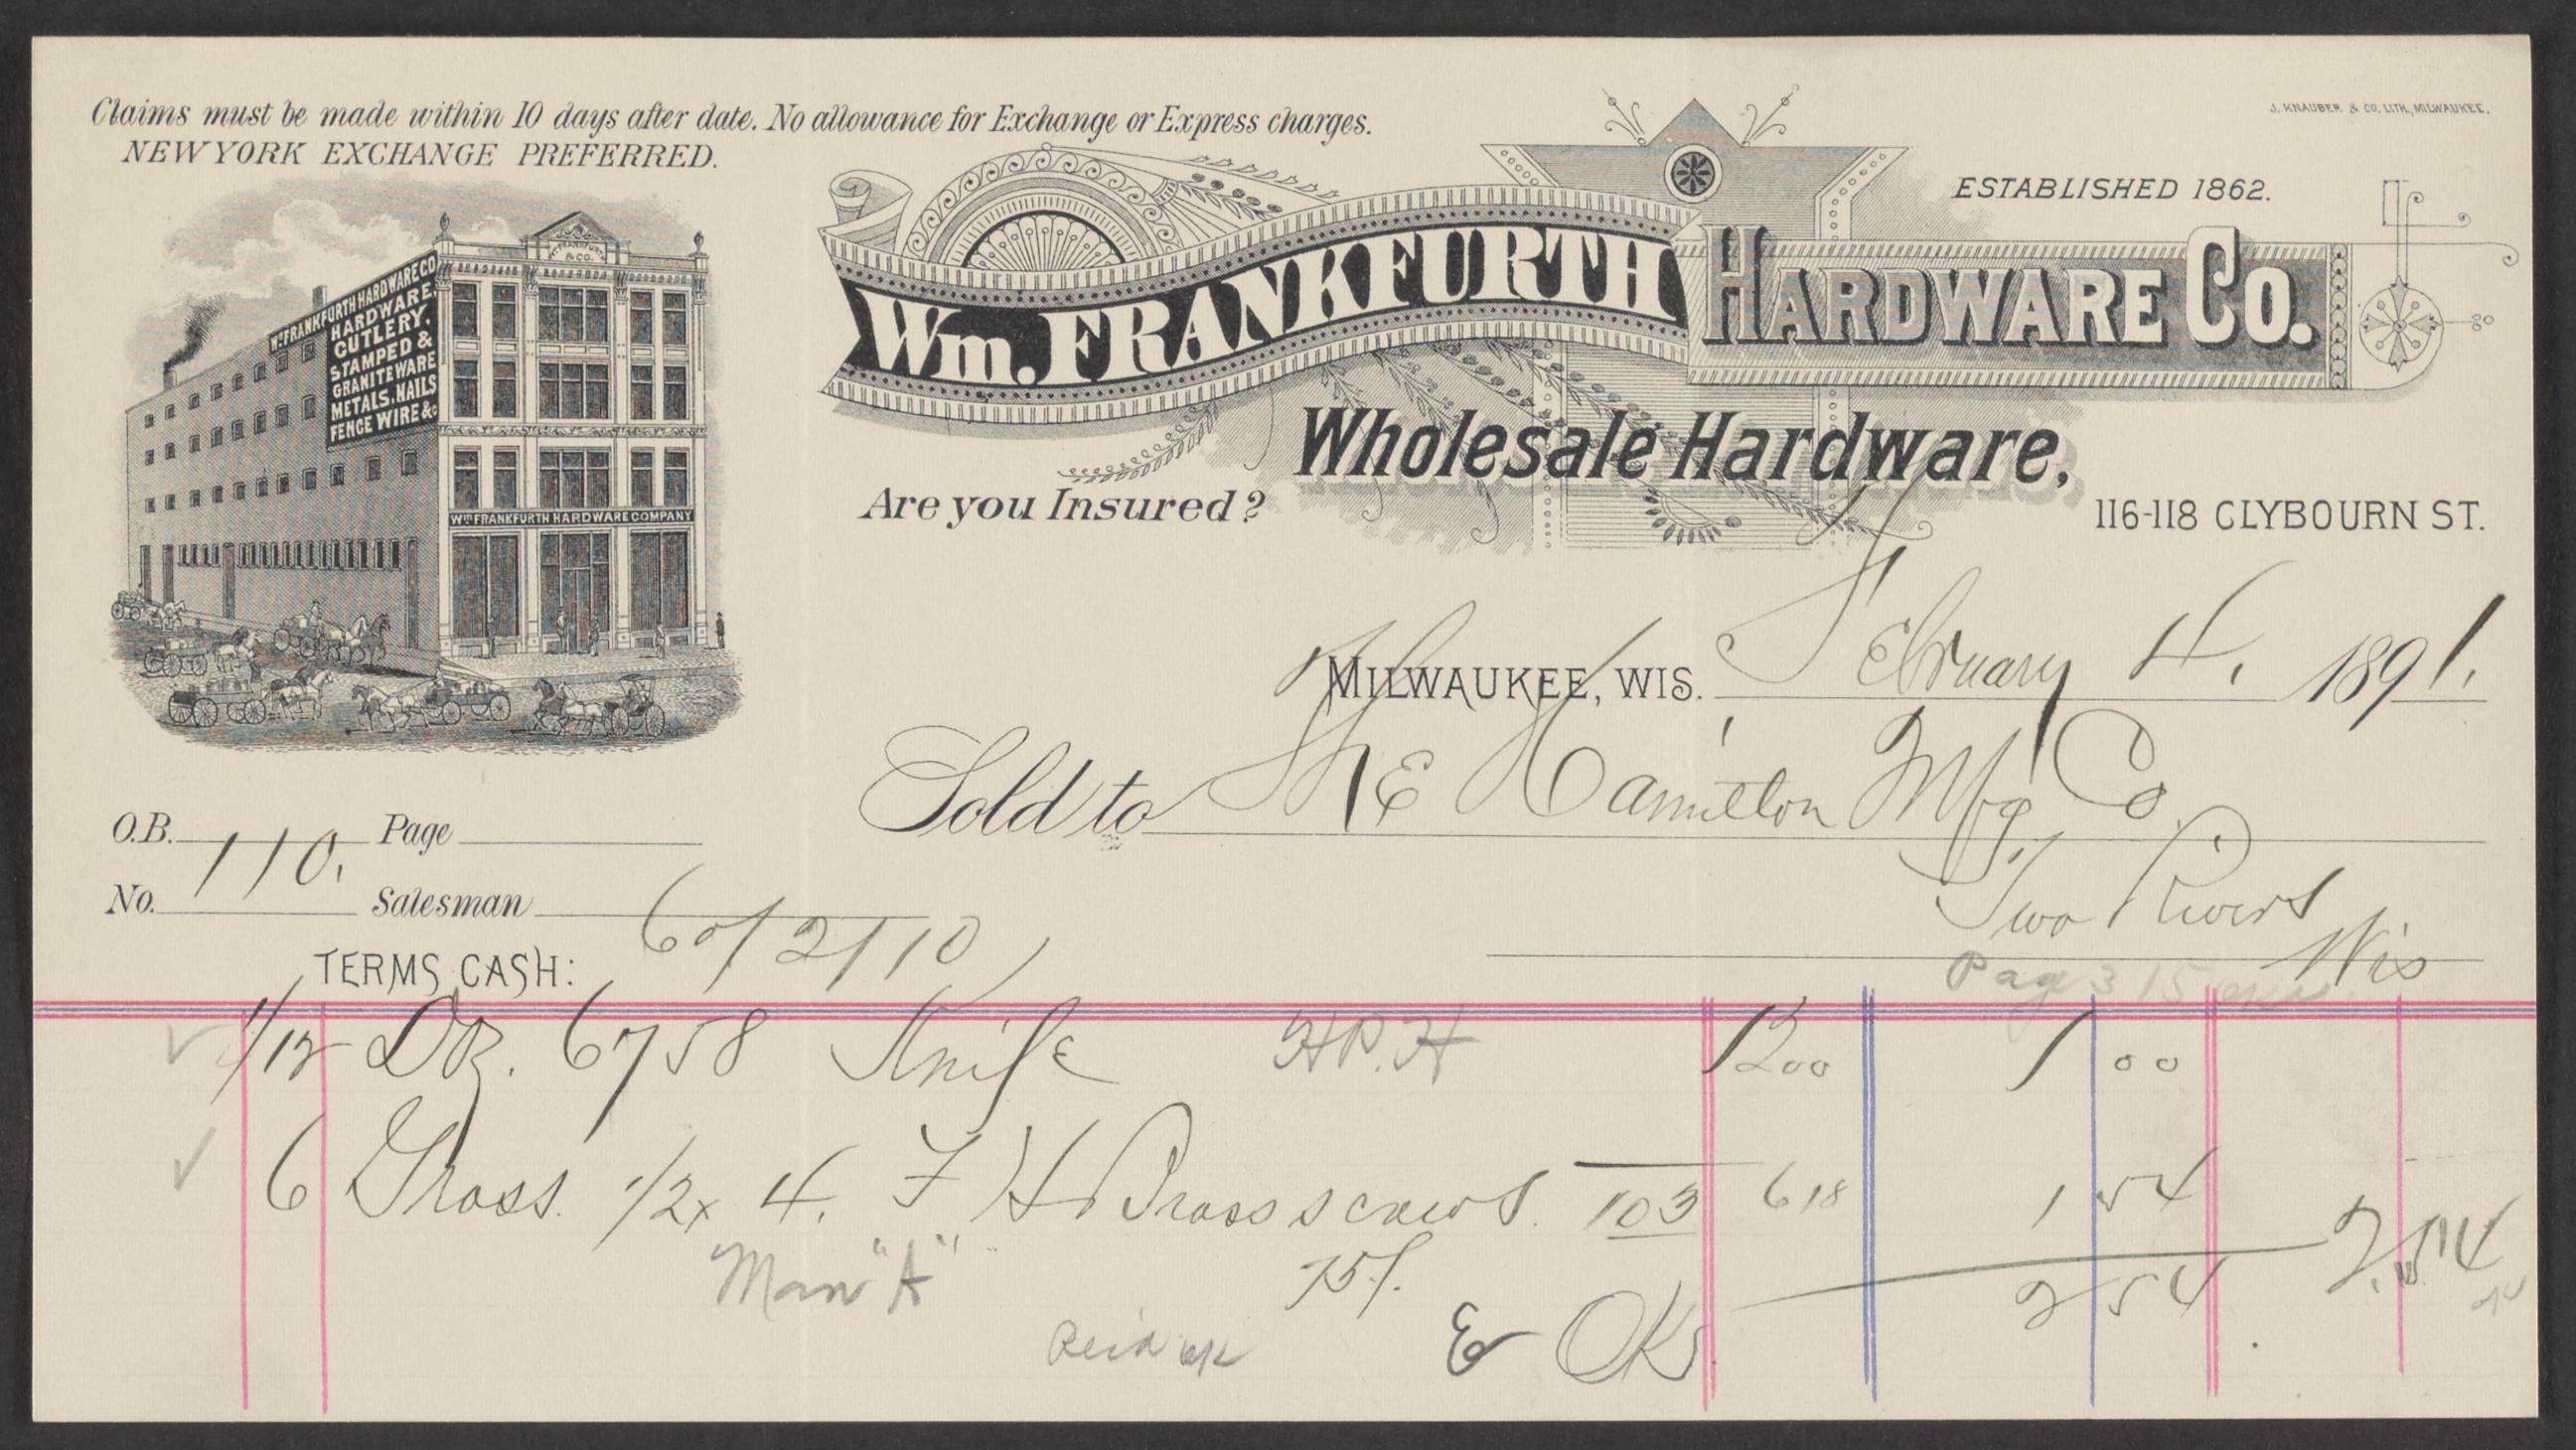 Claims must be made within 10 days after date. No allowance for Exchange or Express charges.
NEW YORK EXCHANGE PREFERRED.
J. KNAUBER & CO. LITH, MILWAUKEE.
ESTABLISHED 1862.
Wm. FRANKFURTH HARDWARE CO.
Wholesale Hardware,
Are you Insured?
116-118 CLYBOURN ST.
FRANKFURTH
& CO.
Wm FRANKFURTH HARDWARE CO
HARDWARE,
CUTLERY,
STAMPED &
GRANITEWARE
METALS, NAILS
FENCE WIRE &c
Wm FRANKFURTH HARDWARE COMPANY
MILWAUKEE, WIS. February 4, 1891.
Sold to The Hamilton Mfg Co.
Two Rivers
Wis
O.B. 110. Page
No. Salesman
TERMS CASH: 60/2/10
Page 315
1/12 Dz. 6758 Knife H.P.H 1200 1 00
6 Gross. 1/2 x 4. F H Brass screws. 103 618 1 54
75/. 2 54 2.54
Man "A"
& OK